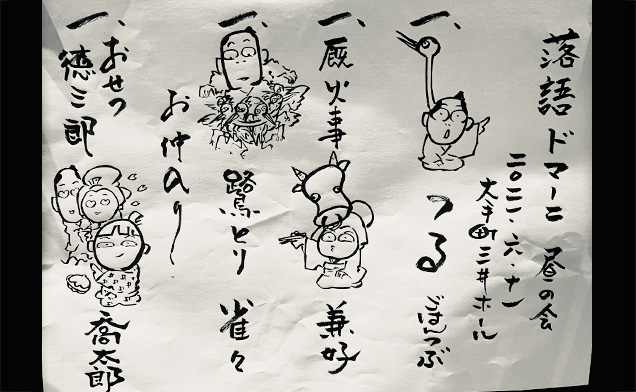 落語ドマーニ 昼の会
二〇二二.六.十一
大手町三井ホール
一、つる ごはんつぶ
一、厩火事 兼好
一、鷺とり 雀々
お仲入り
一、おせつ
徳三郎 喬太郎